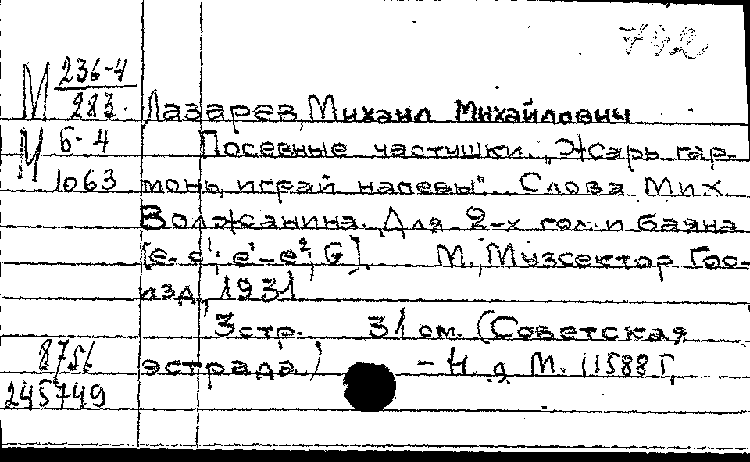 742
М 236-4
283. Лазарев, Михаил Михайлович
М 6-4 Посевные частушки. „Жарь гар-
1063 монь, играй напевы". Слова Мих.
Волжанина. Для 2-х гол. и баяна
[e-c¹; e¹-e²; G]. М., Музсектор Гос-
изд., 1931
3 стр. 31 см. (Советская
8756 эстрада.) - Н. д. М. 11588 Г,
245749